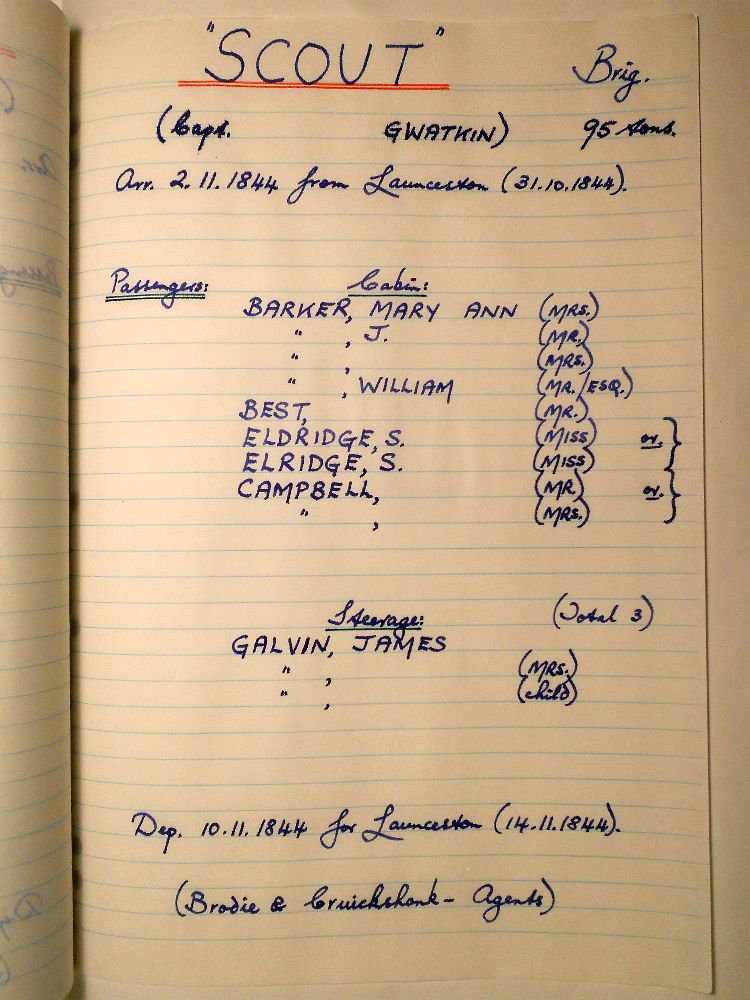 "SCOUT" Brig.
(Capt. GWATKIN) 95 tons.
Arr. 2.11.1844 from Launceston (31.10.1844).
Passengers: Cabin:
BARKER, MARY ANN (MRS.)
" , J. (MR.)
" , (MRS.)
" , WILLIAM (MR./ESQ.)
BEST, (MR.)
ELDRIDGE, S. (MISS) or. }
ELRIDGE, S. (MISS)
CAMPBELL, (MR.) or. }
" , (MRS.)
Steerage: (Total 3)
GALVIN, JAMES
" , (MRS.)
" , (child)
Dep. 10.11.1844 for Launceston (14.11.1844).
(Brodie & Cruickshank - Agents)